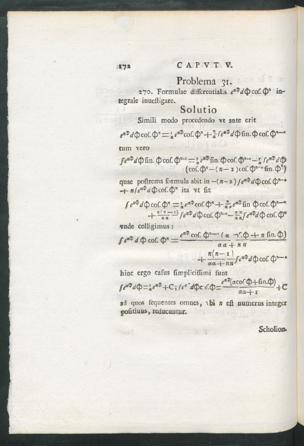 172 CAPVT V.
Problema 31.
270. Formulae differentialis e^{αΦ} dΦ cos. Φ^n in-
tegrale inuestigare.
Solutio
Simili modo procedendo vt ante erit
∫e^{αΦ} dΦ cos. Φ^n = 1/α e^{αΦ} cos. Φ^n + n/α ∫e^{αΦ} dΦ sin. Φ cos. Φ^{n-1}
tum vero
∫e^{αΦ} dΦ sin. Φ cos. Φ^{n-1} = 1/α e^{αΦ} sin. Φ cos. Φ^{n-1} - 1/α ∫e^{αΦ} dΦ
(cos. Φ^n - (n-1) cos. Φ^{n-2} sin. Φ^2)
quae postrema formula abit in -(n-1)∫e^{αΦ} dΦ cos. Φ^{n-2}
+ n∫e^{αΦ} dΦ cos. Φ^n ita vt sit
∫e^{αΦ} dΦ cos. Φ^n = 1/α e^{αΦ} cos. Φ^n + n/αα e^{αΦ} sin. Φ cos. Φ^{n-1}
+ n(n-1)/αα ∫e^{αΦ} dΦ cos. Φ^{n-2} - nn/αα ∫e^{αΦ} dΦ cos. Φ^n
vnde colligimus:
∫e^{αΦ} dΦ cos. Φ^n = e^{αΦ} cos. Φ^{n-1} (α cos. Φ + n sin. Φ) / αα + nn
+ n(n-1)/αα + nn ∫e^{αΦ} dΦ cos. Φ^{n-2}
hinc ergo casus simplicissimi sunt
∫e^{αΦ} dΦ = 1/α e^{αΦ} + C; ∫e^{αΦ} dΦ cos. Φ = e^{αΦ}(α cos. Φ + sin. Φ) / αα + 1 + C
ad quos sequentes omnes, vbi n est numerus integer
positiuus, reducuntur.
Scholion.